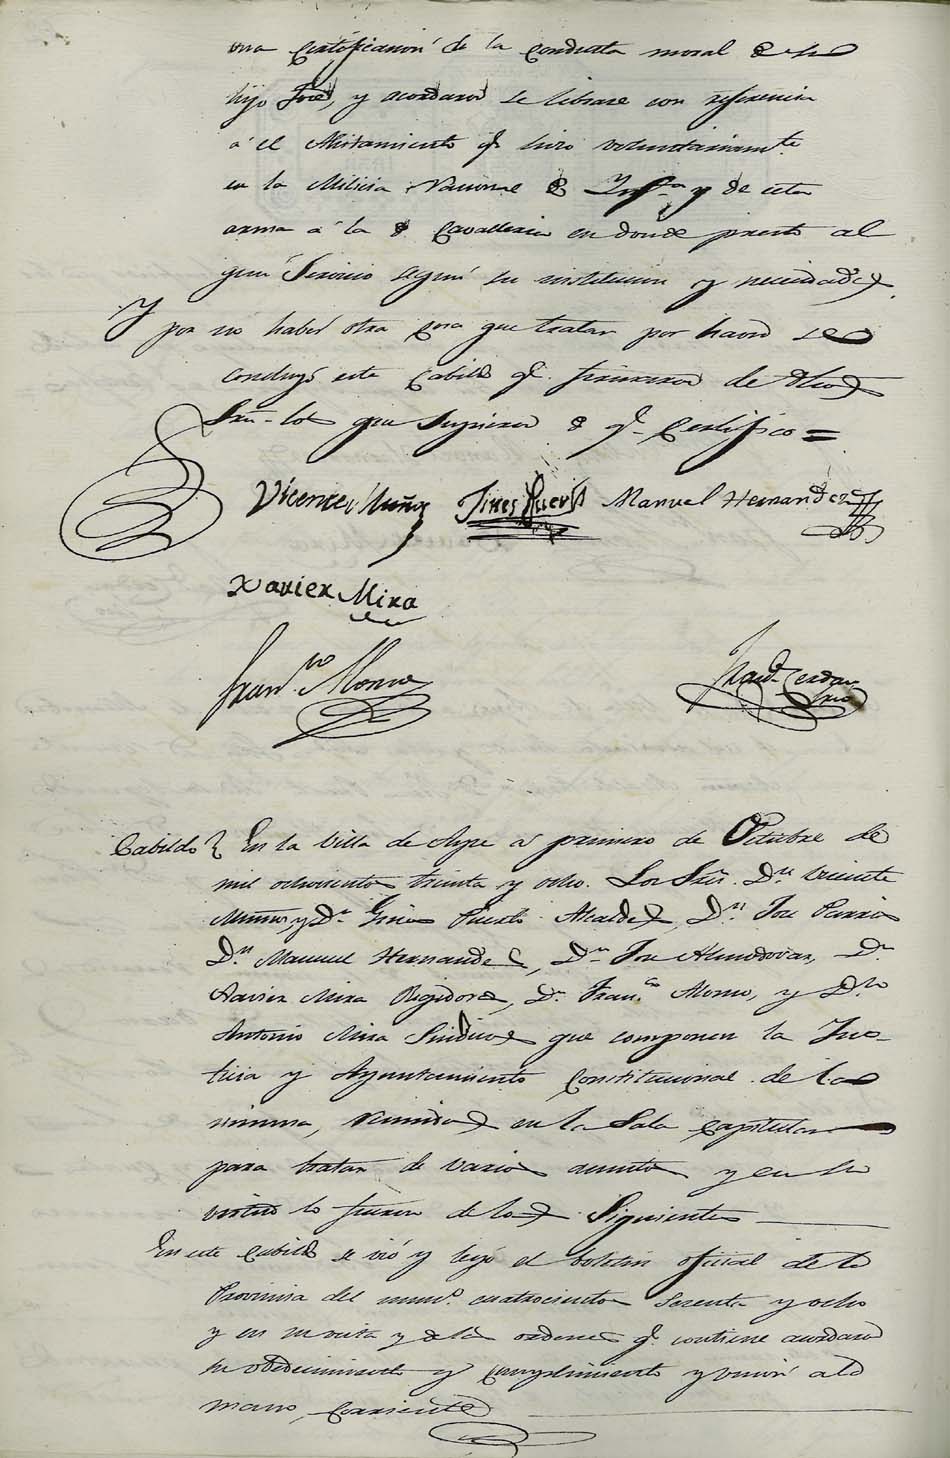 una Certificacion de la Conducta moral de su
hijo José, y acordaron se librase con referencia
á el Alistamiento qe hizo voluntariamte
en la Milicia Nacional de Ynfa y de esta
arma á la de Cavalleria en donde presto al
gun Servicio segun su institucion y necesidades
Y por no haber otra cosa que tratar por haora se
concluyó este Cabildo qe firmaron de dhos
Sres los que Supieron de qe Certifico =
Vicente Muñoz Jines Puerto Manuel Hernandez
Xavier Mira
Franco Alonso Franco Cerdan
Srio
Cabildo En la Villa de Aspe á primero de Octubre de
mil ochocientos treinta y ocho. Los Sres. Dn Vicente
Muñoz y Dn Gines Puerto Alcaldes, Dn Jose Pavia
Dn Manuel Hernandes, Dn Jose Almodovar, Dn
Xavier Mira Regidores, Dn Franco Alonso, y Dn
Antonio Mira Sindicos que componen la Jus-
ticia y Ayuntamiento Constitucional de la
misma, reunidos en la Sala Capitular
para tratar de varios asuntos y en su
virtud lo hicieron de los Siguientes
En este Cabildo se vió y leyó el boletin oficial de la
Provincia del numo cuatrocientos Sesenta y ocho
y en su vista y de las ordenes qe contiene acordaron
su obedecimiento y cumplimiento y union al
mano Corriente